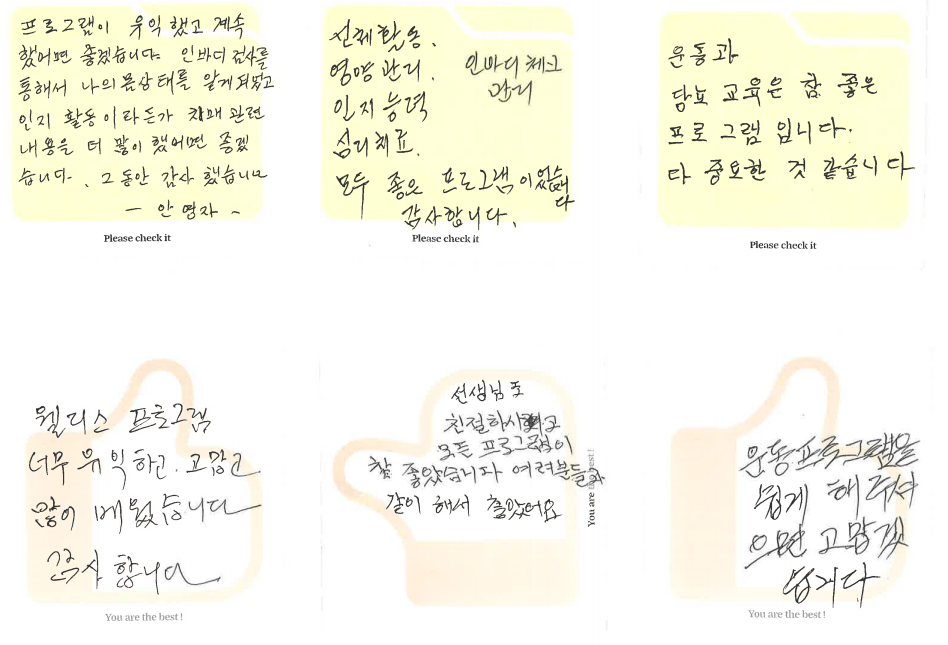 프로그램이 유익했고 계속
했어면 좋겠습니다. 인바디 검사를
통해서 나의 몸상태를 알게되었고
인지 활동이라든가 치매 관련
내용을 더 많이 했어면 좋겠
습니다. 그동안 감사 했습니다
- 안영자 -
Please check it
신체활동.
영양관리.
인지능력
심리치료.
인바디체크
관리
모두 좋은 프로그램이었습니다
감사합니다.
Please check it
운동과
당뇨 교육은 참 좋은
프로그램 입니다.
다 중요한 것 같습니다
Please check it
웰니스 프로그램
너무 유익하고. 고맙고
많이 배웠습니다
감사 합니다
You are the best!
선생님도
친절하시고
모든 프로그램이
참 좋았습니다 여러분들과
같이 해서 좋았어요
You are the best!
운동프로그램을
쉽게 해주셔
으면 고맙겟
습니다
You are the best!